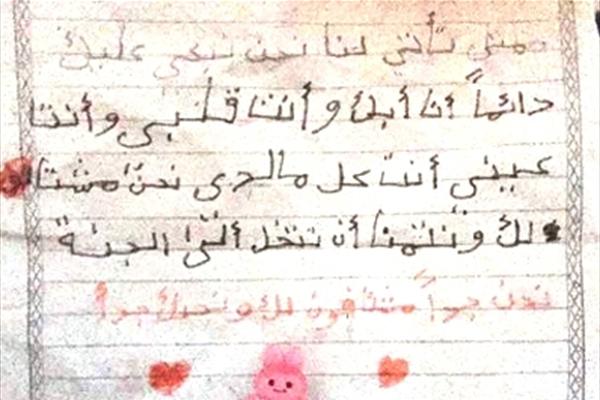 متى تأتي لنا نحن نبكي عليك
دائماً أنا أبك وأنتا قلبي وأنتا
عيني أنت كل مالدي نحن مشتا
لك ونتمنا أن تتخل ألا الجنة
نحن جداً مشتاقون لك ونحبك جداً